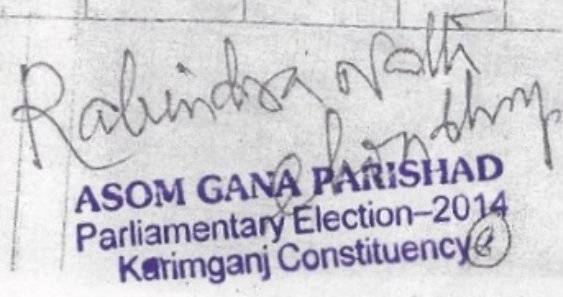 Rabindra Nath
Choudhury
ASOM GANA PARISHAD
Parliamentary Election–2014
Karimganj Constituency